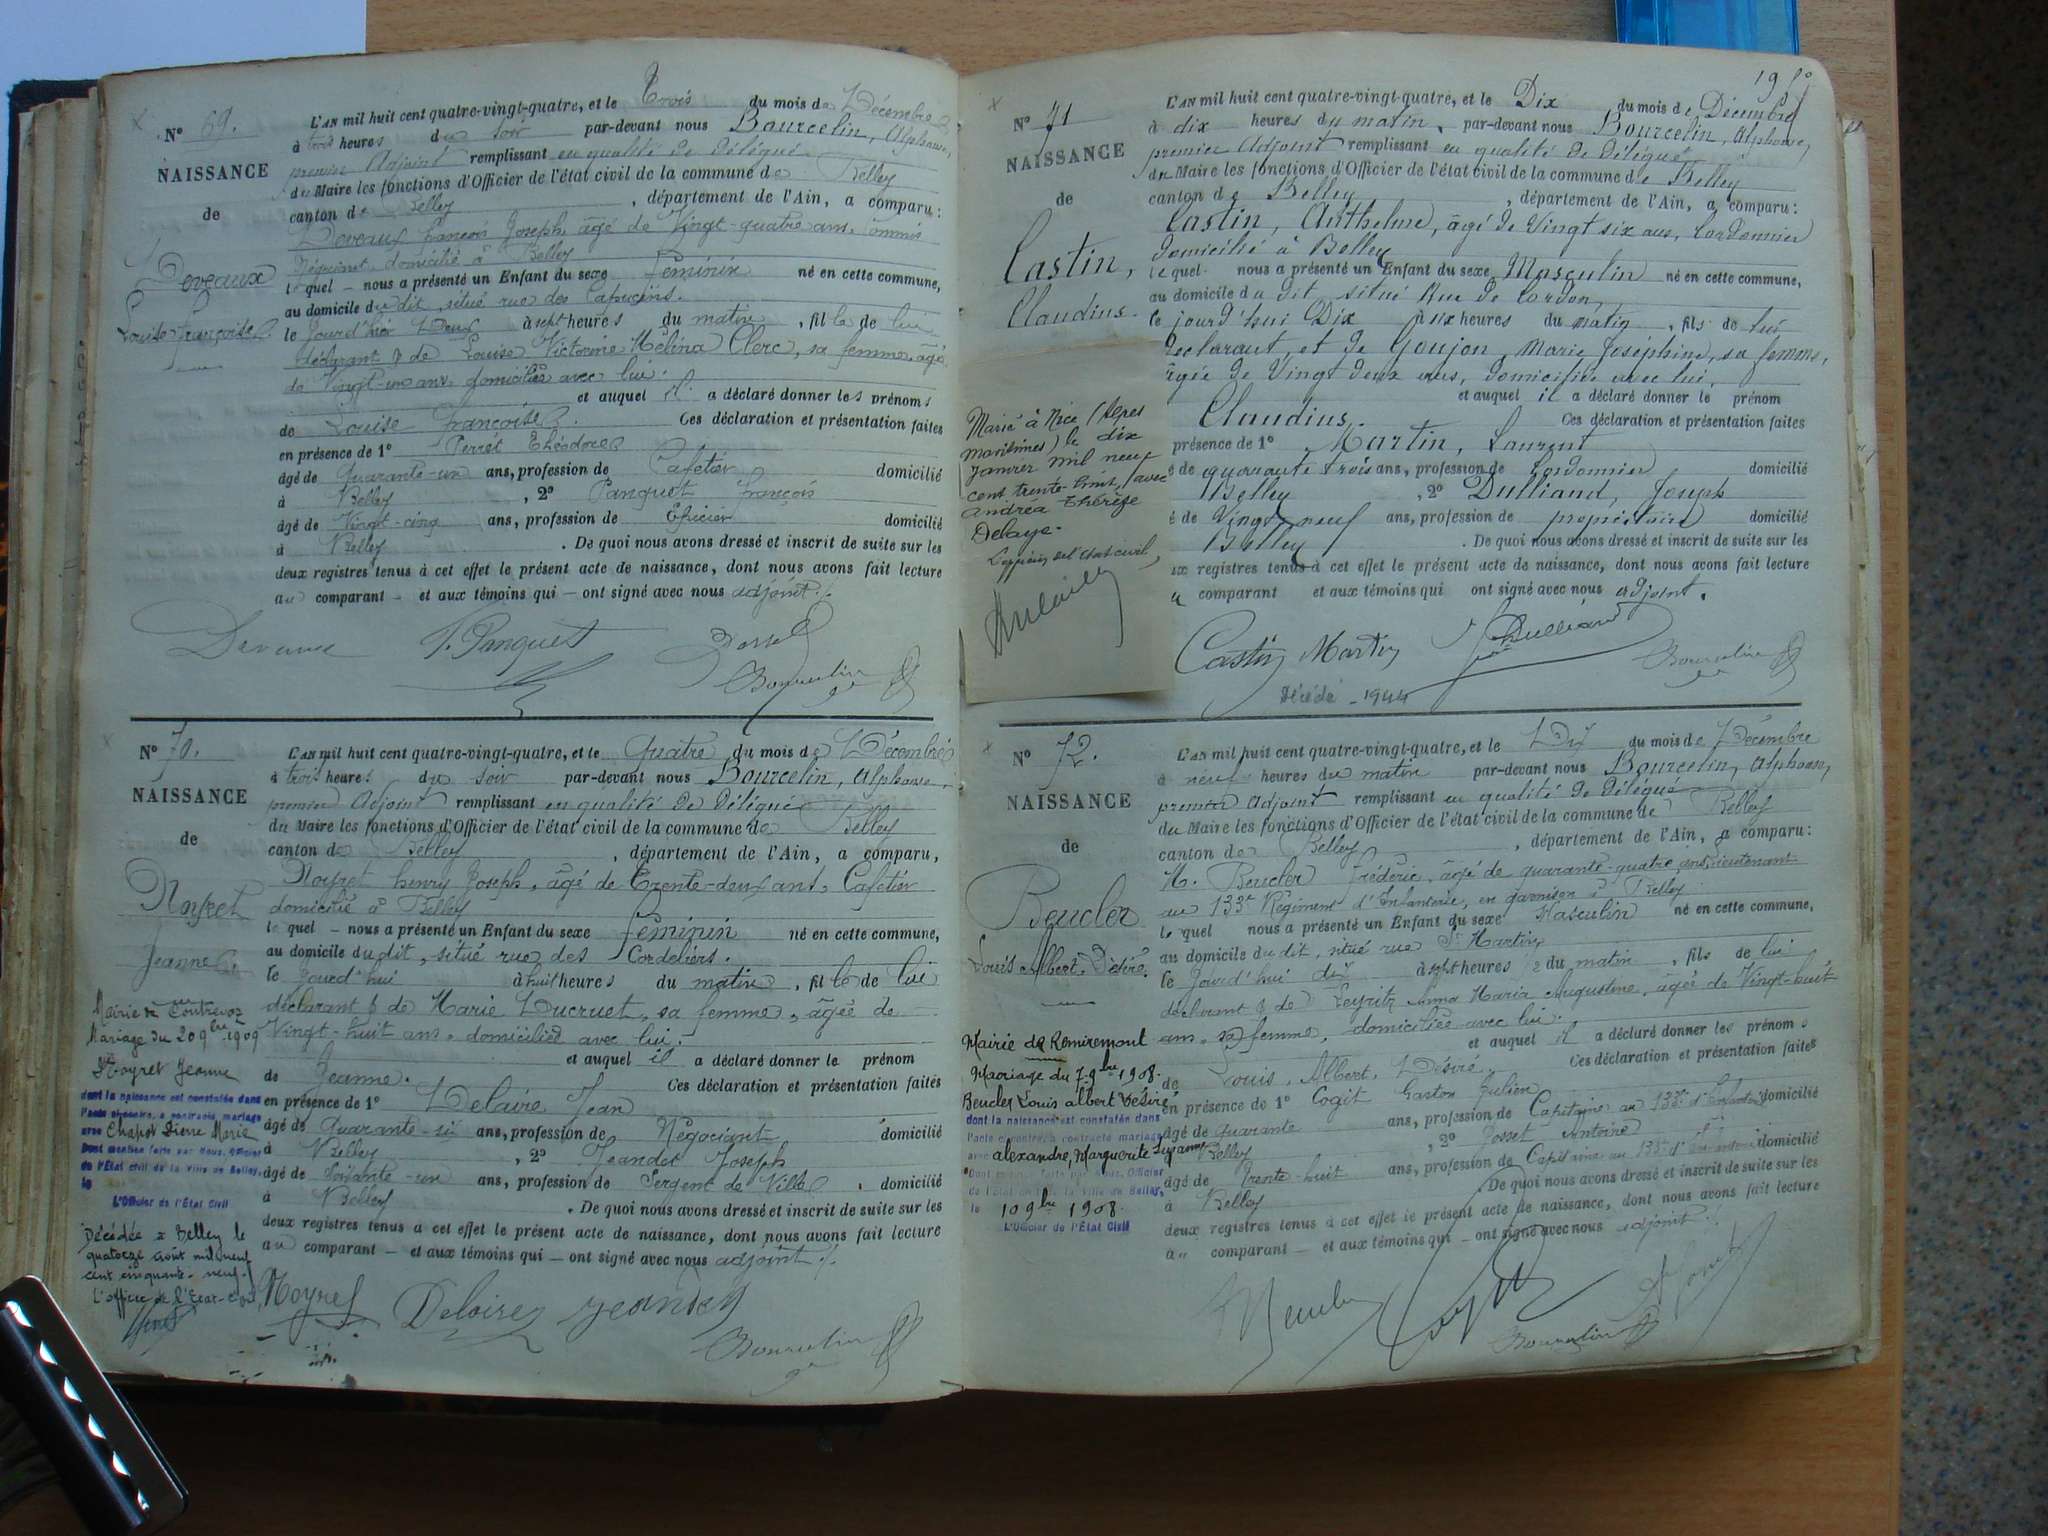 N° 69.
NAISSANCE
de
Deveaux
Louise Françoise.
L'AN mil huit cent quatre-vingt-quatre, et le Trois du mois de Décembre
à trois heures du soir par-devant nous Bourcelin, Alphonse,
premier Adjoint remplissant en qualité de Délégué
du Maire les fonctions d'Officier de l'état civil de la commune de Belley
canton de Belley, département de l'Ain, a comparu:
Deveaux François Joseph, âgé de Vingt-quatre ans, Commis
Négociant, domicilié à Belley
lequel nous a présenté un Enfant du sexe Féminin né en cette commune,
au domicile du dit, situé rue des Capucins.
le jourd'hier Deux à sept heures du matin, fille de lui
déclarant & de Louise Victorine Mélina Clerc, sa femme, âgée
de Vingt-un ans, domiciliée avec lui.
et auquel il a déclaré donner les prénoms
de Louise Françoise. Ces déclaration et présentation faites
en présence de 1° Perret Théodore
âgé de Quarante-un ans, profession de Cafetier domicilié
à Belley, 2° Panquet François
âgé de Vingt-cinq ans, profession de Epicier domicilié
à Belley. De quoi nous avons dressé et inscrit de suite sur les
deux registres tenus à cet effet le présent acte de naissance, dont nous avons fait lecture
au comparant — et aux témoins qui — ont signé avec nous adjoint.
Deveaux F. Panquet
Bourcelin
N° 70.
NAISSANCE
de
Noyret
Jeanne.
Mairie de Contrevoz
Mariage du 20 9bre 1909
Noyret Jeanne
dont la naissance est constatée dans
l'acte ci-contre, a contracté mariage
avec Chapot Pierre Marie
Dont mention faite par Nous, Officier
de l'État civil de la Ville de Belley,
le
L'Officier de l'État Civil
Décédée à Belley le
quatorze août mil neuf
cent cinquante-neuf.
L'officier de l'Etat-Civil,
L'AN mil huit cent quatre-vingt-quatre, et le Quatre du mois de Décembre
à trois heures du soir par-devant nous Bourcelin, Alphonse,
premier Adjoint remplissant en qualité de Délégué
du Maire les fonctions d'Officier de l'état civil de la commune de Belley
canton de Belley, département de l'Ain, a comparu,
Noyret Henry Joseph, âgé de Trente-deux ans, Cafetier
domicilié à Belley
lequel — nous a présenté un Enfant du sexe Féminin né en cette commune,
au domicile du dit, situé rue des Cordeliers.
le jourd'hui à huit heures du matin, fille de lui
déclarant & de Marie Ducruet, sa femme, âgée de
Vingt-huit ans, domiciliée avec lui.
et auquel il a déclaré donner le prénom
de Jeanne. Ces déclaration et présentation faites
en présence de 1° Delaire Jean
âgé de Quarante-six ans, profession de Négociant domicilié
à Belley, 2° Jeandet Joseph
âgé de Soixante-un ans, profession de Sergent de Ville, domicilié
à Belley. De quoi nous avons dressé et inscrit de suite sur les
deux registres tenus à cet effet le présent acte de naissance, dont nous avons fait lecture
au comparant — et aux témoins qui — ont signé avec nous adjoint.
Noyret Delaire Jeandet
Bourcelin
N° 71
NAISSANCE
de
Castin,
Claudius.
Marié à Nice (Alpes
maritimes) le dix
janvier mil neuf
cent trente-huit, avec
Andréa Thérèse
Delaye.
L'officier de l'état civil,
L'AN mil huit cent quatre-vingt-quatre, et le Dix du mois de Décembre
à dix heures du matin, par-devant nous Bourcelin, Alphonse,
premier Adjoint remplissant en qualité de Délégué
du Maire les fonctions d'Officier de l'état civil de la commune de Belley
canton de Belley, département de l'Ain, a comparu:
Castin, Anthelme, âgé de Vingt six ans, Cordonnier
domicilié à Belley
lequel nous a présenté un Enfant du sexe Masculin né en cette commune,
au domicile du dit situé Rue de Cordon,
le jourd'hui Dix à six heures du matin, fils de lui
déclarant, et de Goujon, Marie Joséphine, sa femme,
âgée de Vingt deux ans, domiciliée avec lui,
et auquel il a déclaré donner le prénom
Claudius. Ces déclaration et présentation faites
présence de 1° Martin, Laurent
é de quarante trois ans, profession de Cordonnier domicilié
Belley, 2° Dulliand, Joseph
é de Vingt neuf ans, profession de propriétaire domicilié
Belley. De quoi nous avons dressé et inscrit de suite sur les
ux registres tenus à cet effet le présent acte de naissance, dont nous avons fait lecture
au comparant et aux témoins qui ont signé avec nous adjoint.
Castin Martin J. Dulliand
Bourcelin
Décédé 1944
N° 72.
NAISSANCE
de
Beucler
Louis Albert Désiré.
Mairie de Remiremont
Mariage du 7 9bre 1908.
Beucler Louis Albert Désiré
dont la naissance est constatée dans
l'acte ci-contre, a contracté mariage
avec Alexandre, Marguerite Suzanne
Dont mention faite par Nous, Officier
de l'État civil de la Ville de Belley,
le 10 9bre 1908.
L'Officier de l'État Civil
L'AN mil huit cent quatre-vingt-quatre, et le Dix du mois de Décembre
à neuf heures du matin par-devant nous Bourcelin, Alphonse,
premier Adjoint remplissant en qualité de Délégué
du Maire les fonctions d'Officier de l'état civil de la commune de Belley
canton de Belley, département de l'Ain, a comparu:
M. Beucler Frédéric, âgé de quarante-quatre ans, lieutenant
au 133e Régiment d'Infanterie, en garnison à Belley
lequel nous a présenté un Enfant du sexe Masculin né en cette commune,
au domicile du dit, situé rue St Martin
le jourd'hui dix à sept heures 1/2 du matin, fils de lui
déclarant & de Leyritz Anna Maria Augustine, âgée de Vingt-huit
ans, sa femme, domiciliée avec lui.
et auquel il a déclaré donner les prénoms
de Louis, Albert, Désiré. Ces déclaration et présentation faites
en présence de 1° Cogit Gaston Julien
âgé de quarante ans, profession de Capitaine au 133e d'Infanterie domicilié
à Belley, 2° Josset Antoine
âgé de Trente-huit ans, profession de Capitaine au 133e d'Infanterie domicilié
à Belley. De quoi nous avons dressé et inscrit de suite sur les
deux registres tenus à cet effet le présent acte de naissance, dont nous avons fait lecture
au comparant — et aux témoins qui — ont signé avec nous adjoint.
Beucler
Bourcelin